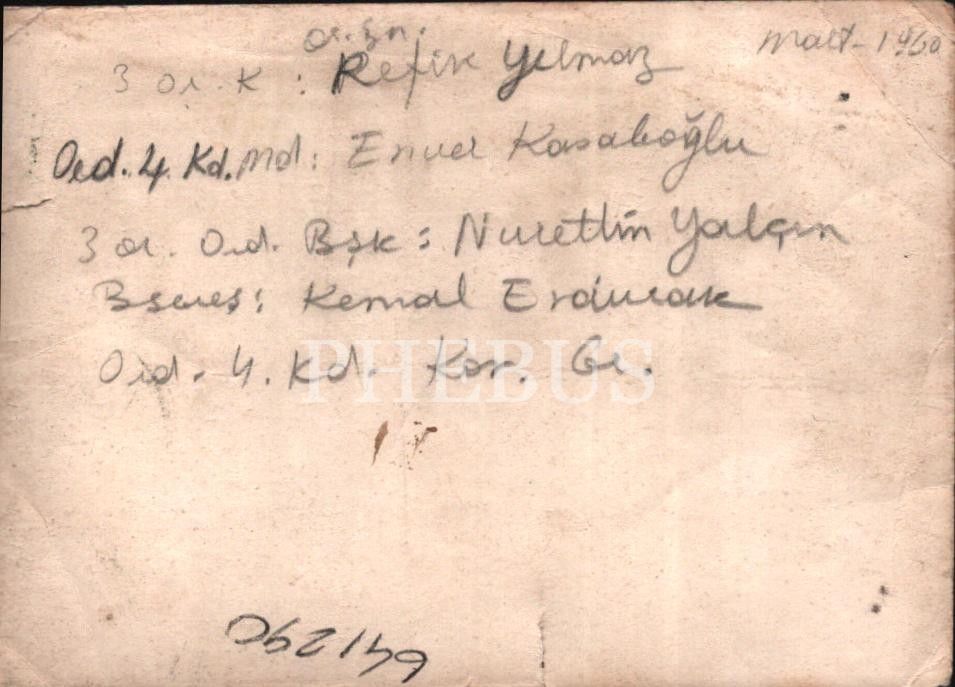 Mart - 1960
or. Zn.
3 or. K : Refik Yılmaz
Ord. 4. Kd. Md: Enver Kasaboğlu
3 or. Ord. Bşk : Nurettin Yalçın
Bşçvş: Kemal Erdurak
Ord. 4. Kd. Kor. Gr.
PHEBUS